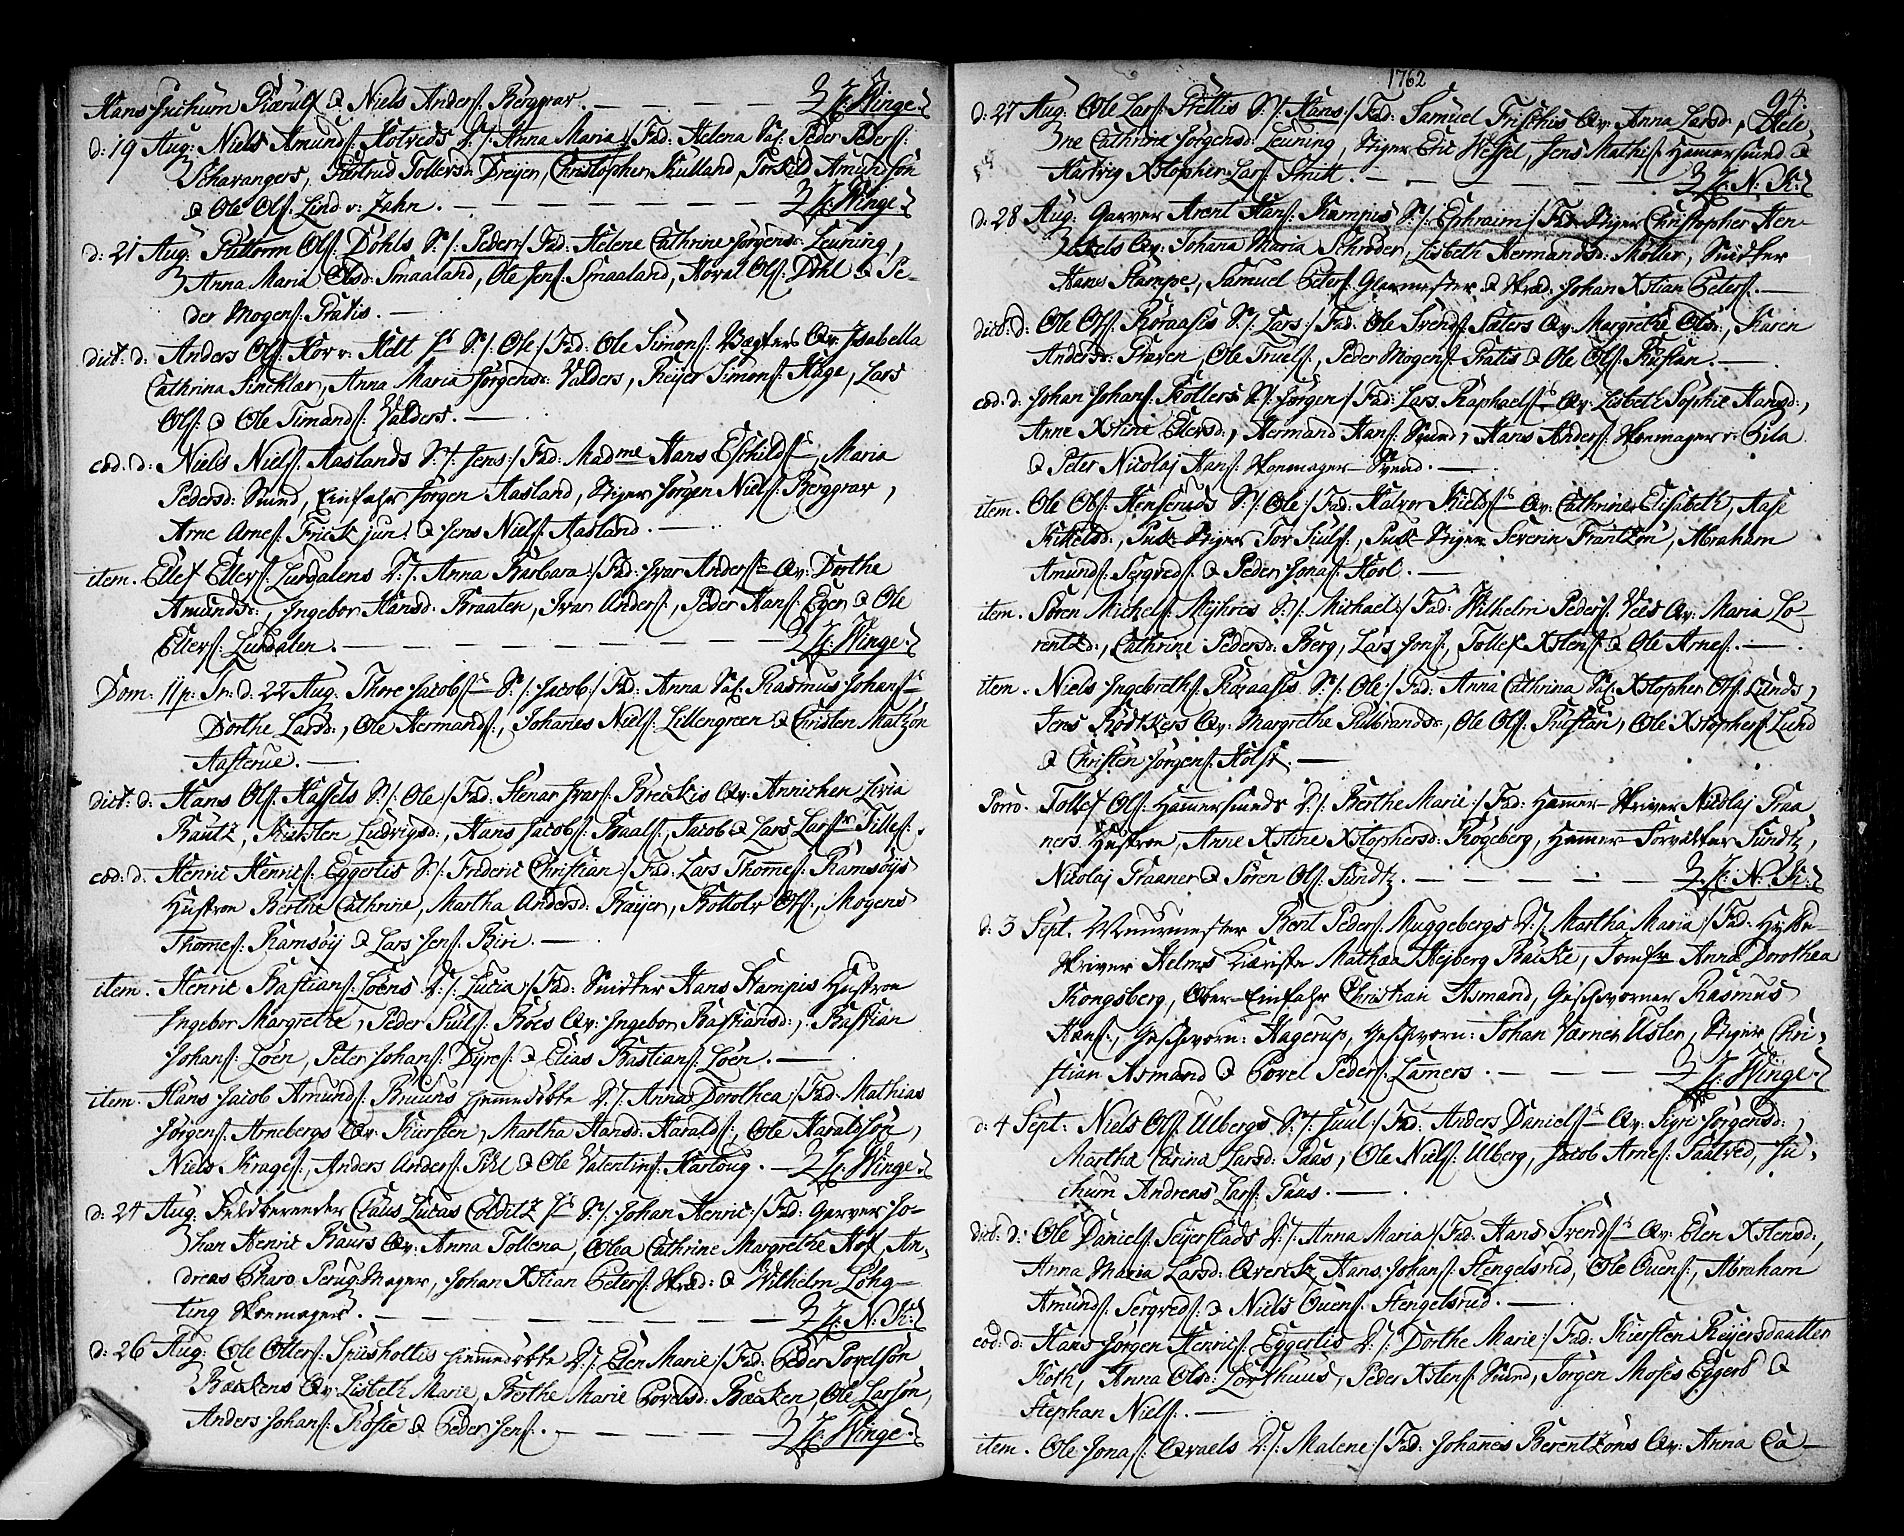 Hans Juchum Kierulf & Niels Anders: Berggrav. — H: Winge.
d: 19 Aug: Niels Amunds: Kotveds D:/: Anna Maria:/ Fad: Helena Sal: Peder Peders:
Schavangers, Giertrud Tollersd: Dreijer, Christopher Kulland, Torkild Amundsön
& Ole Ols: Lind v: Jahn. — H: Winge.
d: 21 Aug: Guttorm Ols: Döhls S:/: Peder:/ Fad: Helene Cathrine Jörgensd: Leuning,
Anna Maria Olsd: Smaaland, Ole Jens: Smaaland, Hovel Ols: Döhl & Pe-
der Mogens: Pratis. —
dict: d: Anders Ols: Kor v: Helt S:/: Ole:/ Fad: Ole Simons: Vogters Qv: Isabella
Cathrina Sincklar, Anna Maria Jörgensd: Valders, Reijer Simons: Hage, Lars
Ols: & Ole Timands: Valders. —
eod: d: Niels Niels: Aaslands S:/: Jens:/ Fad: Madme Hans Eschilds:, Maria
Pedersd: Svend, Einfahr Jörgen Aasland, Stiger Jörgen Niels: Berggrav,
Arne Arnes: Frick jun: & Jens Niels: Aasland. —
item. Ellef Ellevs: Lurdalens D:/: Anna Barbara:/ Fad: Ivar Anders: Qv: Dorthe
Amundsd:, Ingebor Hansd: Braaten, Ivar Anders:, Peder Hans: Eger & Ole
Ellevs: Lurdalen. — H: Winge.
Dom: 11 p: Tr: d: 22 Aug. Thore Jacobs: S:/: Jacob:/ Fad: Anna Sal: Rasmus Johans:
Dorthe Larsd:, Ole Hermands:, Johanes Niels: Lillengreen & Christen Matzön
Aasterue. —
dict: d: Hans Ols: Hassels S:/: Ole:/ Fad: Stenar Ivars: Breckis Qv: Annichen Livia
Rautz, Kiersten Ludvigsd:, Hans Jacobs: Baals:, Jacob & Lars Lars: Tilles:.
eod: d: Henric Henrics: Eggertis S:/: Frideric Christian:/ Fad: Lars Thomes: Ramsöijs
Hustroe Berthe Cathrine, Martha Andersd: Baijer, Bottolv Ols:, Mogens
Thomes: Ramsöij & Lars Jens: Biri. —
item. Henric Bastians: Löens D:/: Lucia:/ Fad: Snidker Hans Stampis Hustroe
Ingebor Margrethe, Peder Juls: Böes Qv: Ingebor Bastiansd:, Bastian
Johans: Löen, Peter Johans: Dyres: & Elias Bastians: Löen. —
item. Hans Jacob Amunds: Bruuns hiemedöbte D:/: Anna Dorothea:/ Fad: Mathias
Jörgens: Arnebergs Qv: Kiersten, Martha Hansd: Haralds:, Ole Haraldsön,
Niels Krages:, Anders Anders: Pihl & Ole Valentins: Hartoug. — H: Winge.
d: 24 Aug: Feldbereender Claus Lucas Colditz S:/: Johan Henric:/ Fad: Garver Jo-
han Henric Baurs Qv: Anna Tollena, Olea Cathrine Margrethe Hof, An-
dreas Charo Perug Mager, Johan Xstian Peters: Skræd: & Wilhelm Löhg-
ting Skomager. — H: N: K:
d: 26 Aug: Ole Olters: Spiesholtis hiemedöbte D:/: Eden Marie:/ Fad: Peder Povelsön
Backens Qv: Lisbeth Marie, Berthe Marie Povelsd: Backen, Ole Larsön,
Anders Johans: Röste & Peder Jens:. — H: Winge.
1762
94.
d: 27 Aug: Ole Lars: Prittis S:/: Hans:/ Fad: Samuel Frischis Qv: Anna Larsd:, Hele,
ne Cathrine Jörgensd: Leuning, Stiger Eric Wessel, Jens Mathis: Hamersund &
Hartvig Xstopher Lars: Pritt. — H: N: K:
d: 28 Aug: Garver Arent Hans: Kampis S:/: Ephraim:/ Fad: Stiger Christopher Hen-
Qv: Johana Maria Schröder, Lisbeth Hermandsd: Möller, Snidker
Hans Stampe, Samuel Peters: Glarmester & Skræd: Johan Xstian Peters:. —
dict: d: Ole Ols: Koraasis S:/: Lars:/ Fad: Ole Svends: Sæters Qv: Margrethe Olsd:, Karen
Andersd: Graven, Ole Truels:, Peder Mogens: Pratis & Ole Ols: Kierstan. —
eod: d: Johan Johans: Kollers S:/: Jörgen:/ Fad: Lars Raphaels: Qv: Lisbeth Sophie Hansd:,
Anne Xstine Ellersd:, Hermand Hans: Svend, Hans Anders: Skomager v: Pila
& Peter Nicolaj Hans: Skomager Svend. —
item. Ole Ols: Henseruds S:/: Ole:/ Fad: Halvor Kields: Qv: Cathrine Elisabeth, Aase
Kittelsd:, Puk-Stiger Tor Juls:, Puk-Stiger Severin Frantzön, Abraham
Amunds: Sergved: & Peder Jonas: Kosl. —
item. Sören Michels: Mejhres S:/: Michael:/ Fad: Wilhelm Peders: Veis Qv: Maria Lo-
rentzd:, Cathrine Pedersd: Berg, Lars Jons:, Tollef Xstens: & Ole Arnes:. —
item. Niels Ingebreths: Koraasis S:/: Ole:/ Fad: Anna Cathrina Sal: Xstopher Ols: Lunds,
Jens Rödkers Qv: Margrethe Gulbrandsd:, Ole Ols: Kierstan, Ole Xstophers: Lund
& Christen Jörgens: Holst. —
Porro. Tollef Ols: Hamersunds D:/: Berthe Marie:/ Fad: Hamer-Skriver Nicolaj Graa
ners Hustroe, Anne Xstine Xstophersd: Kogeberg, Hamer-Forvalter Sundtz,
Nicolaj Graaner & Sören Ols: Sundtz. — H: N: K:
d: 3 Sept. Muurmester Bent Peders: Muggebergs D:/: Martha Maria:/ Fad: Hytte-
skriver Helms Kiæriste Mathea Hejberg Racke, Jomfr Anna Dorothea
Kongsberg, Ober-Einfahr Christian Asmand, Geschworner Rasmus
Hans:, Geschworn: Hagerup, Geschworn: Johan Værner Usler, Stiger Chri-
stian Asmand & Povel Peders: Lamers. — H: Winge.
d: 4 Sept: Niels Ols: Ulbergs S:/: Juul:/ Fad: Anders Daniels: Qv: Sigri Jörgensd:,
Martha Carina Larsd: Paas, Ole Niels: Ulberg, Jacob Arnes: Saatved, Ju-
chum Andreas Lars: Paas. —
dict: d: Ole Daniels: Seijerstads D:/: Anna Maria:/ Fad: Hans Svends: Qv: Eden Xstensd:,
Anna Maria Larsd: Qvernes, Hans Johans: Stengelsrud, Ole Ouens:, Abraham
Amunds: Sergved: & Niels Ouens: Stengelsrud. —
eod: d: Hans Jörgen Henrics: Eggertis D:/: Dorthe Marie:/ Fad: Kiersten Reijersdaatter
Koth, Anna Olsd: Lorthuus, Peder Xstens: Svend, Jörgen Moses Eggers &
Stephan Niels:. —
item. Ole Jonas: Qvaels D:/: Malene:/ Fad: Johanes Berentzöns Qv: Anna Ca-